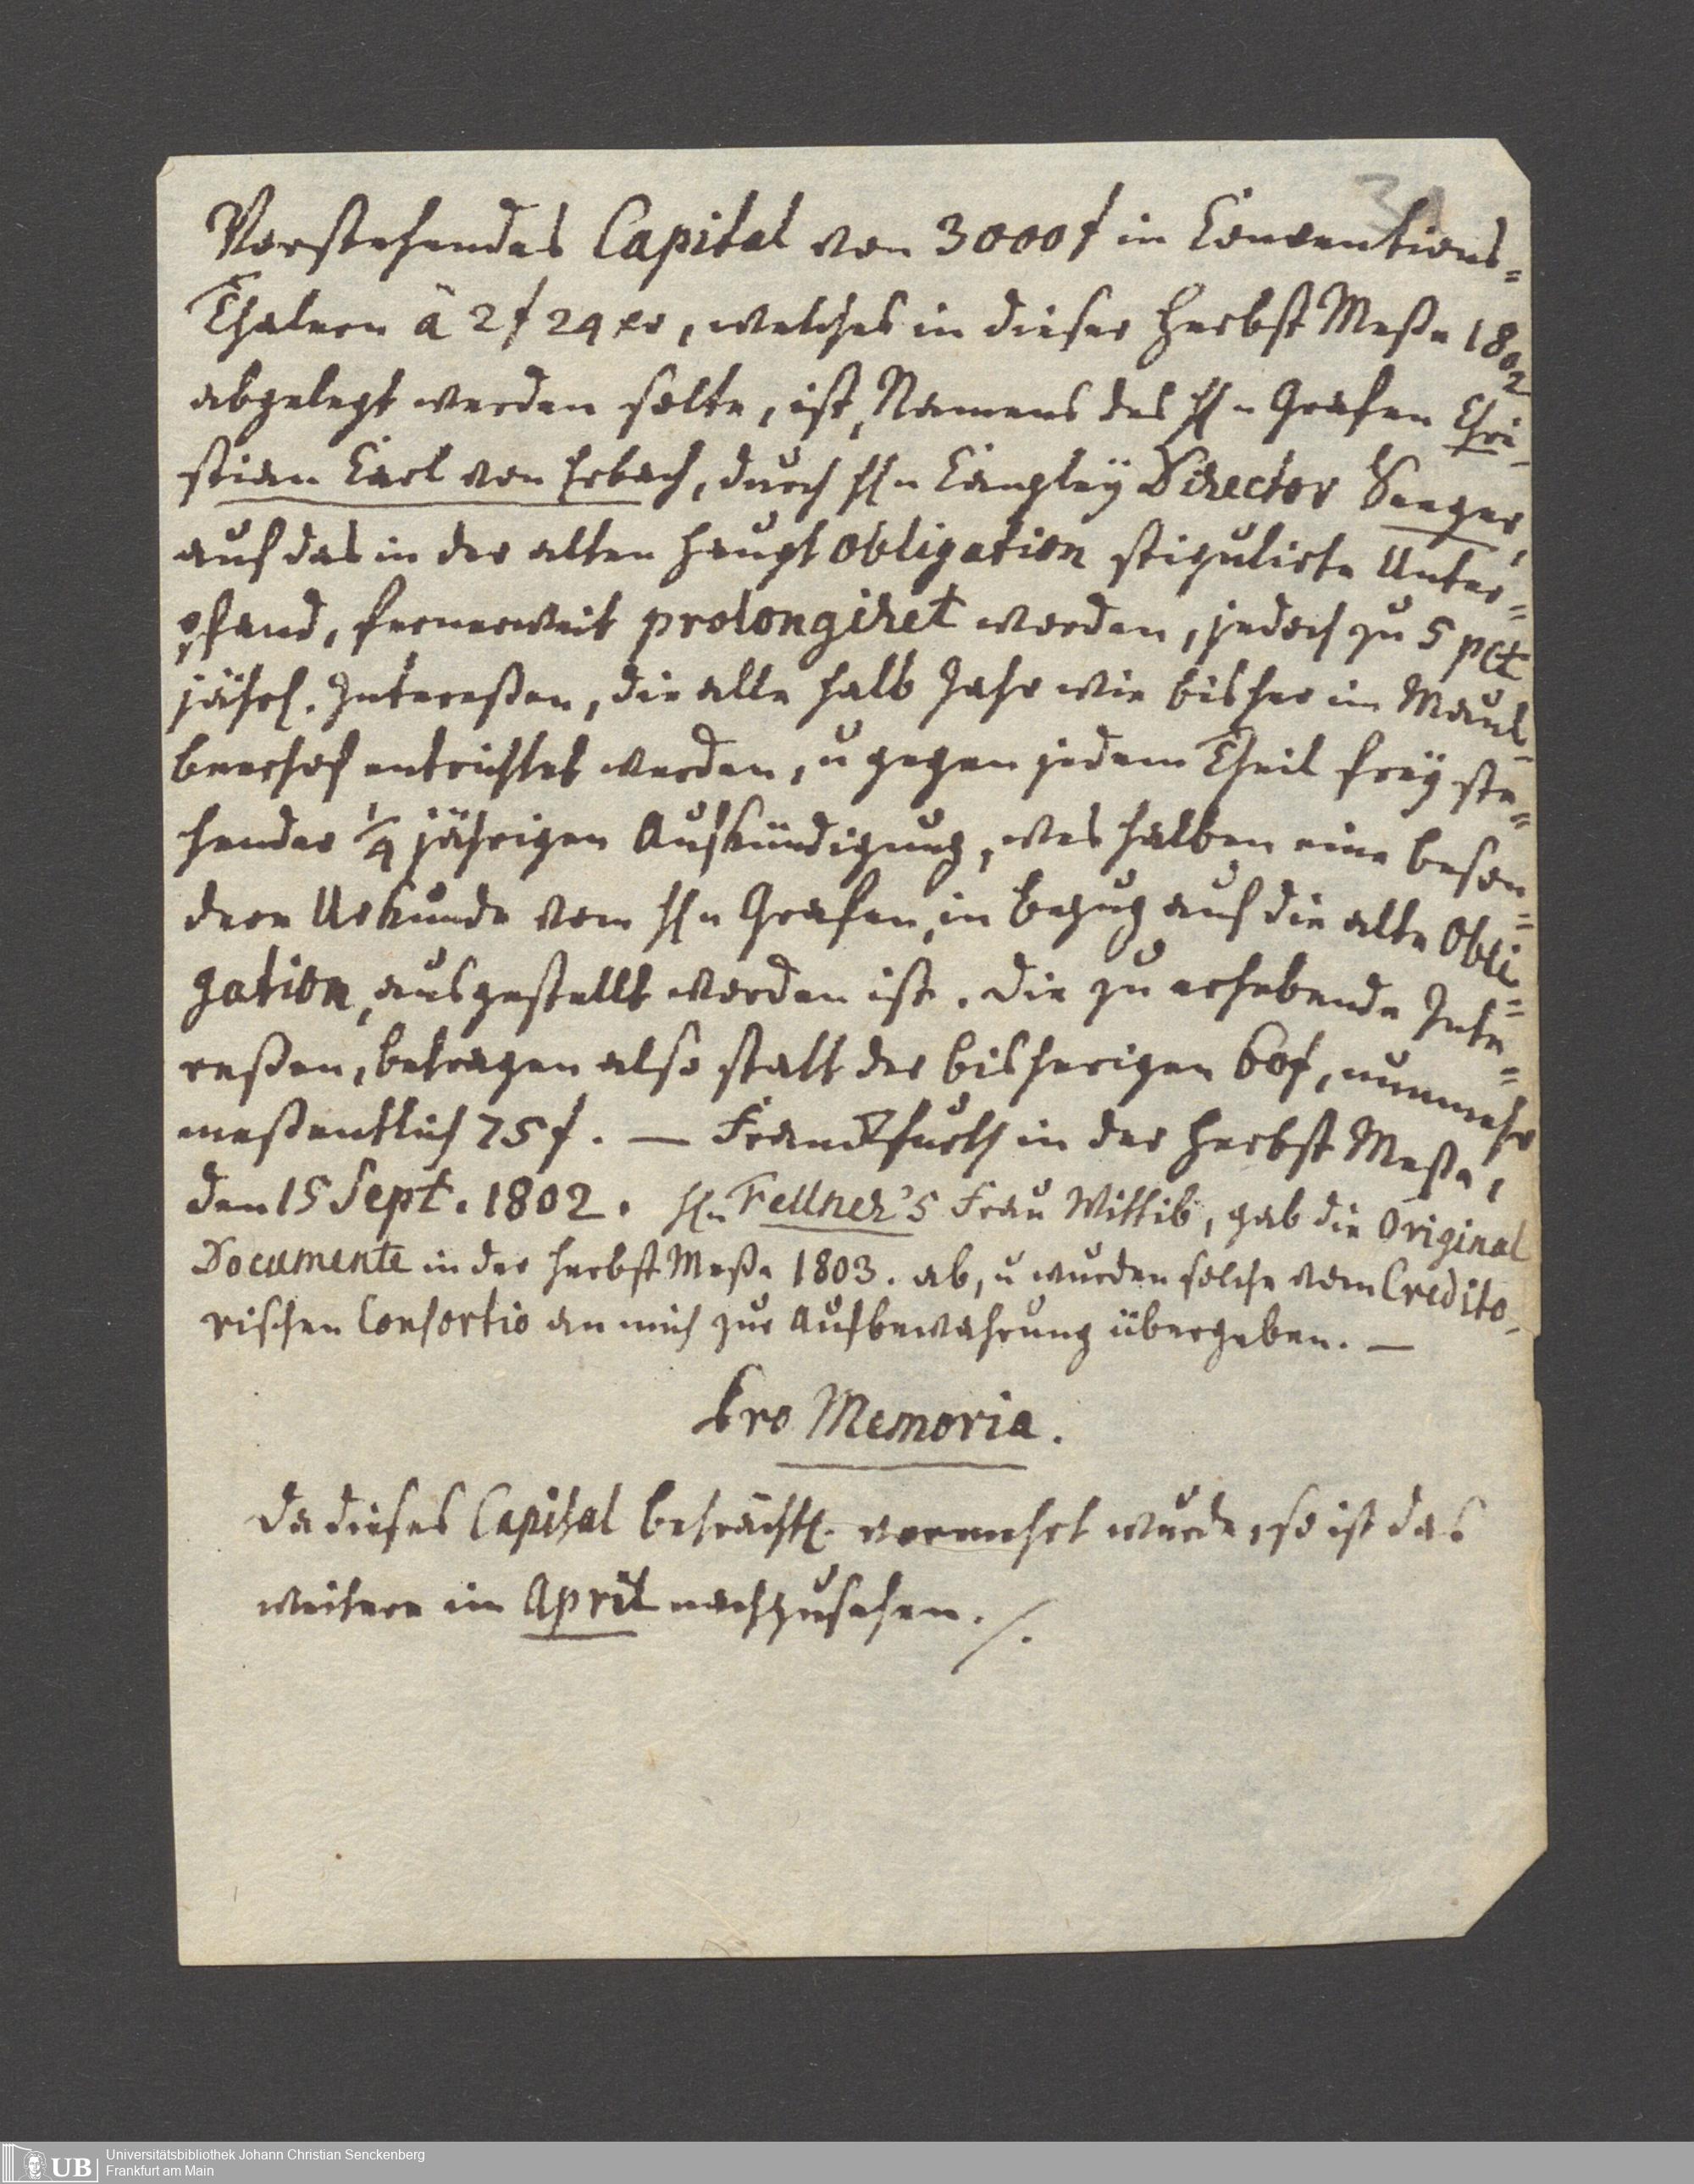 31
Vorstehendes Capital von 3000 f in Conventions=
Thalern â 2 f 24 xr, welches in dieser Herbst Meße 1802
abgelegt werden solte, ist, Namens des H̄n Grafen Chri-
stian Carl von Erbach, durch H̄n Canzley Director Seeger,
auf das in der alten Haupt Obligation stipulirte Unter=
pfand, fernerweit prolongiret worden, jedoch zu 5 pCt
jährl. Intereßen, die alle halb Jahr wie bisher im Maul-
beerhof entrichtet werden, u gegen jedem Theil frey ste=
hender 1/4 jährigen Aufkündigung, weshalben eine beson=
dere Urkunde vom H̄n Grafen, in bezug auf die alte Obli=
gation, ausgestellt worden ist. Die zu erhebende Inte=
reßen, betragen also statt der bisherigen 60 f, nunmehr
meßentlich 75 f. — Franckfurth in der Herbst Meße,
den 15 Sept. 1802. H̄n Fellner's Frau Wittib, gab die Original
Documente in der Herbst Meße 1803. ab, u wurden solche vom Credito-
rischen Consortio an mich zur Aufbewahrung übergeben. —
Pro Memoria.
Da dieses Capital beträchtl. vermehrt wurde, so ist das
weitere im April nachzusehen. ./.
UB
Universitätsbibliothek Johann Christian Senckenberg
Frankfurt am Main